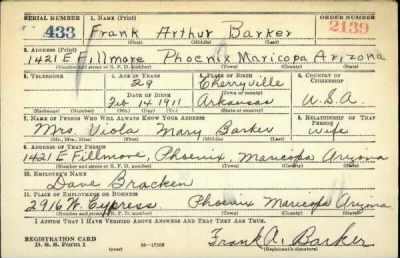 SERIAL NUMBER 1. NAME (Print) ORDER NUMBER
433 Frank Arthur Barker 2139
(First) (Middle) (Last)
2. ADDRESS (Print)
1421 E Fillmore Phoenix Maricopa Arizona
(Number and street or R. F. D. number) (Town) (County) (State)
3. TELEPHONE 4. AGE IN YEARS 5. PLACE OF BIRTH 6. COUNTRY OF CITIZENSHIP
29 Cherryville
DATE OF BIRTH (Town or county)
Feb 14 1911 Arkansas U.S.A.
(Exchange) (Number) (Mo.) (Day) (Yr.) (State or country)
7. NAME OF PERSON WHO WILL ALWAYS KNOW YOUR ADDRESS 8. RELATIONSHIP OF THAT PERSON
Mrs. Viola Mary Barker wife
(Mr., Mrs., Miss) (First) (Middle) (Last)
9. ADDRESS OF THAT PERSON
1421 E Fillmore, Phoenix, Maricopa Arizona
(Number and street or R. F. D. number) (Town) (County) (State)
10. EMPLOYER'S NAME
Dave Bracken
11. PLACE OF EMPLOYMENT OR BUSINESS
2916 W. Cypress Phoenix Maricopa Arizona
(Number and street or R. F. D. number) (Town) (County) (State)
I AFFIRM THAT I HAVE VERIFIED ABOVE ANSWERS AND THAT THEY ARE TRUE.
REGISTRATION CARD
D. S. S. Form 1 (over) 16—17105 Frank A. Barker
(Registrant's signature)